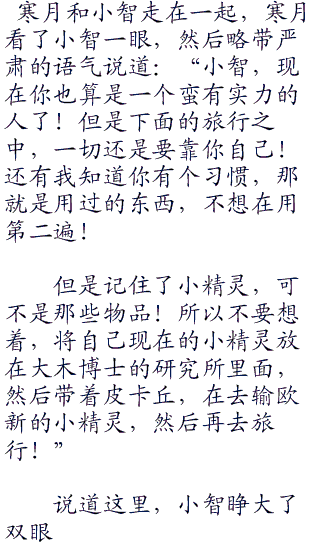 寒月和小智走在一起，寒月
看了小智一眼，然后略带严
肃的语气说道：“小智，现
在你也算是一个蛮有实力的
人了！但是下面的旅行之
中，一切还是要靠你自己！
还有我知道你有个习惯，那
就是用过的东西，不想在用
第二遍！
但是记住了小精灵，可
不是那些物品！所以不要想
着，将自己现在的小精灵放
在大木博士的研究所里面，
然后带着皮卡丘，在去输欧
新的小精灵，然后再去旅
行！”
说道这里，小智睁大了
双眼